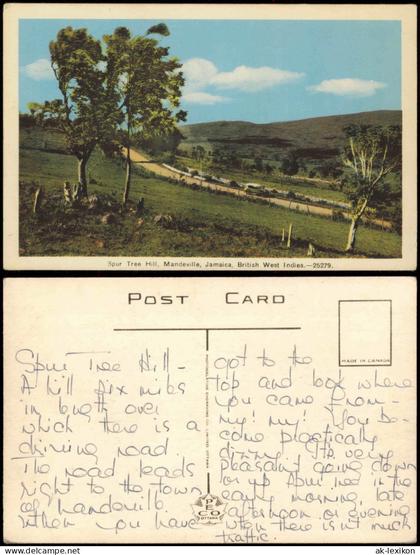 Spur Tree Hill, Mandeville, Jamaica, British West Indies.—25279.
POST CARD
MADE IN CANADA
Spur Tree Hill -
A hill six miles
in length over
which there is a
driving road.
The road leads
right to the town
of Mandeville.
When you have
PECO
OTTAWA
got to the
top and look where
you came from -
my! my! You be-
come practically
dizzy. It's very
pleasant going down
or up Spur Tree in the
early morning, late
afternoon or evening
when there isn't much
traffic.
© ak-lexikon.de